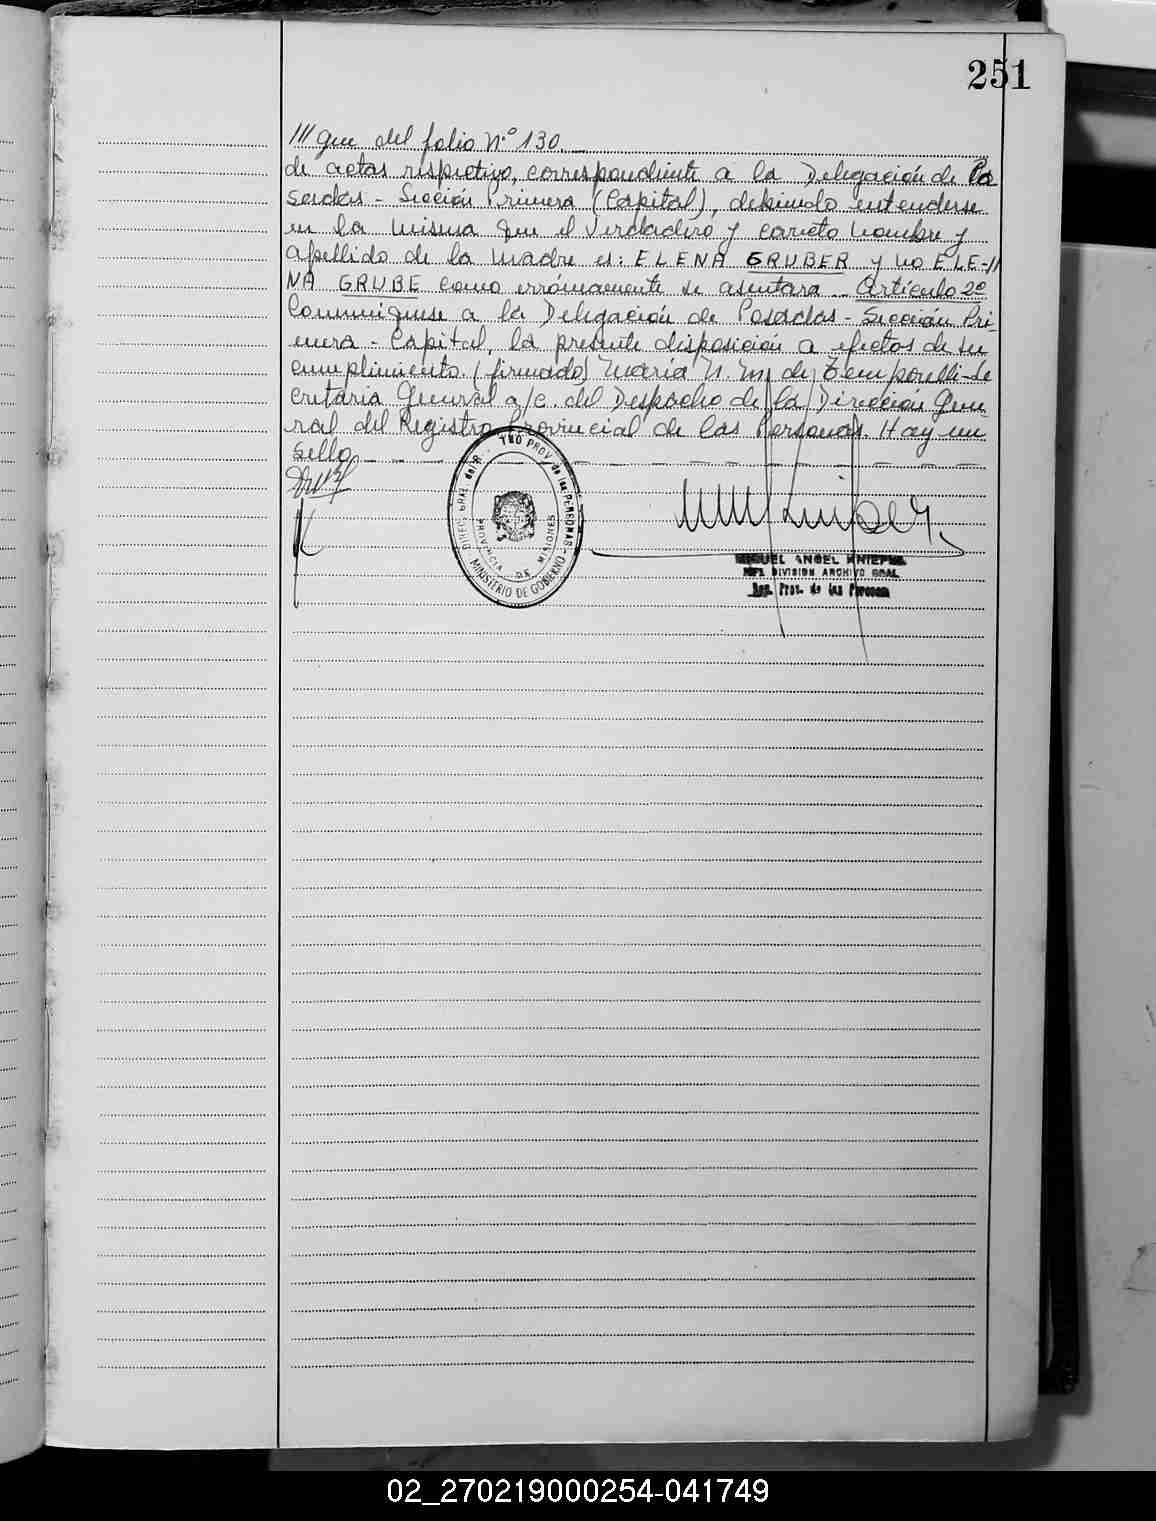 251
/// gue del folio Nº 130
de actas respectivo, correspondiente a la Delegación de Po
sadas - Sección Primera (Capital), debiendo entenderse
en la misma que el verdadero y correcto nombre y
apellido de la madre es: ELENA GRUBER y no ELE-//
NA GRUBE como erroneamente se asentara. Artículo 2º
Comuníquese a la Delegación de Posadas - Sección Pri
mera - Capital, la presente disposición a efectos de su
cumplimiento. (firmado) María N. M. de Temporelli - Se
cretaria General a/c. del Despacho de la Dirección Gene
ral del Registro Provincial de las Personas. Hay un
sello
DIREC. GRAL. del R. TRO PROV. de las PERSONAS - MINISTERIO DE GOBIERNO
PROVINCIA DE MISIONES
MIGUEL ANGEL
DIVISION ARCHIVO GRAL
Reg. Prov. de las Personas
02_270219000254-041749